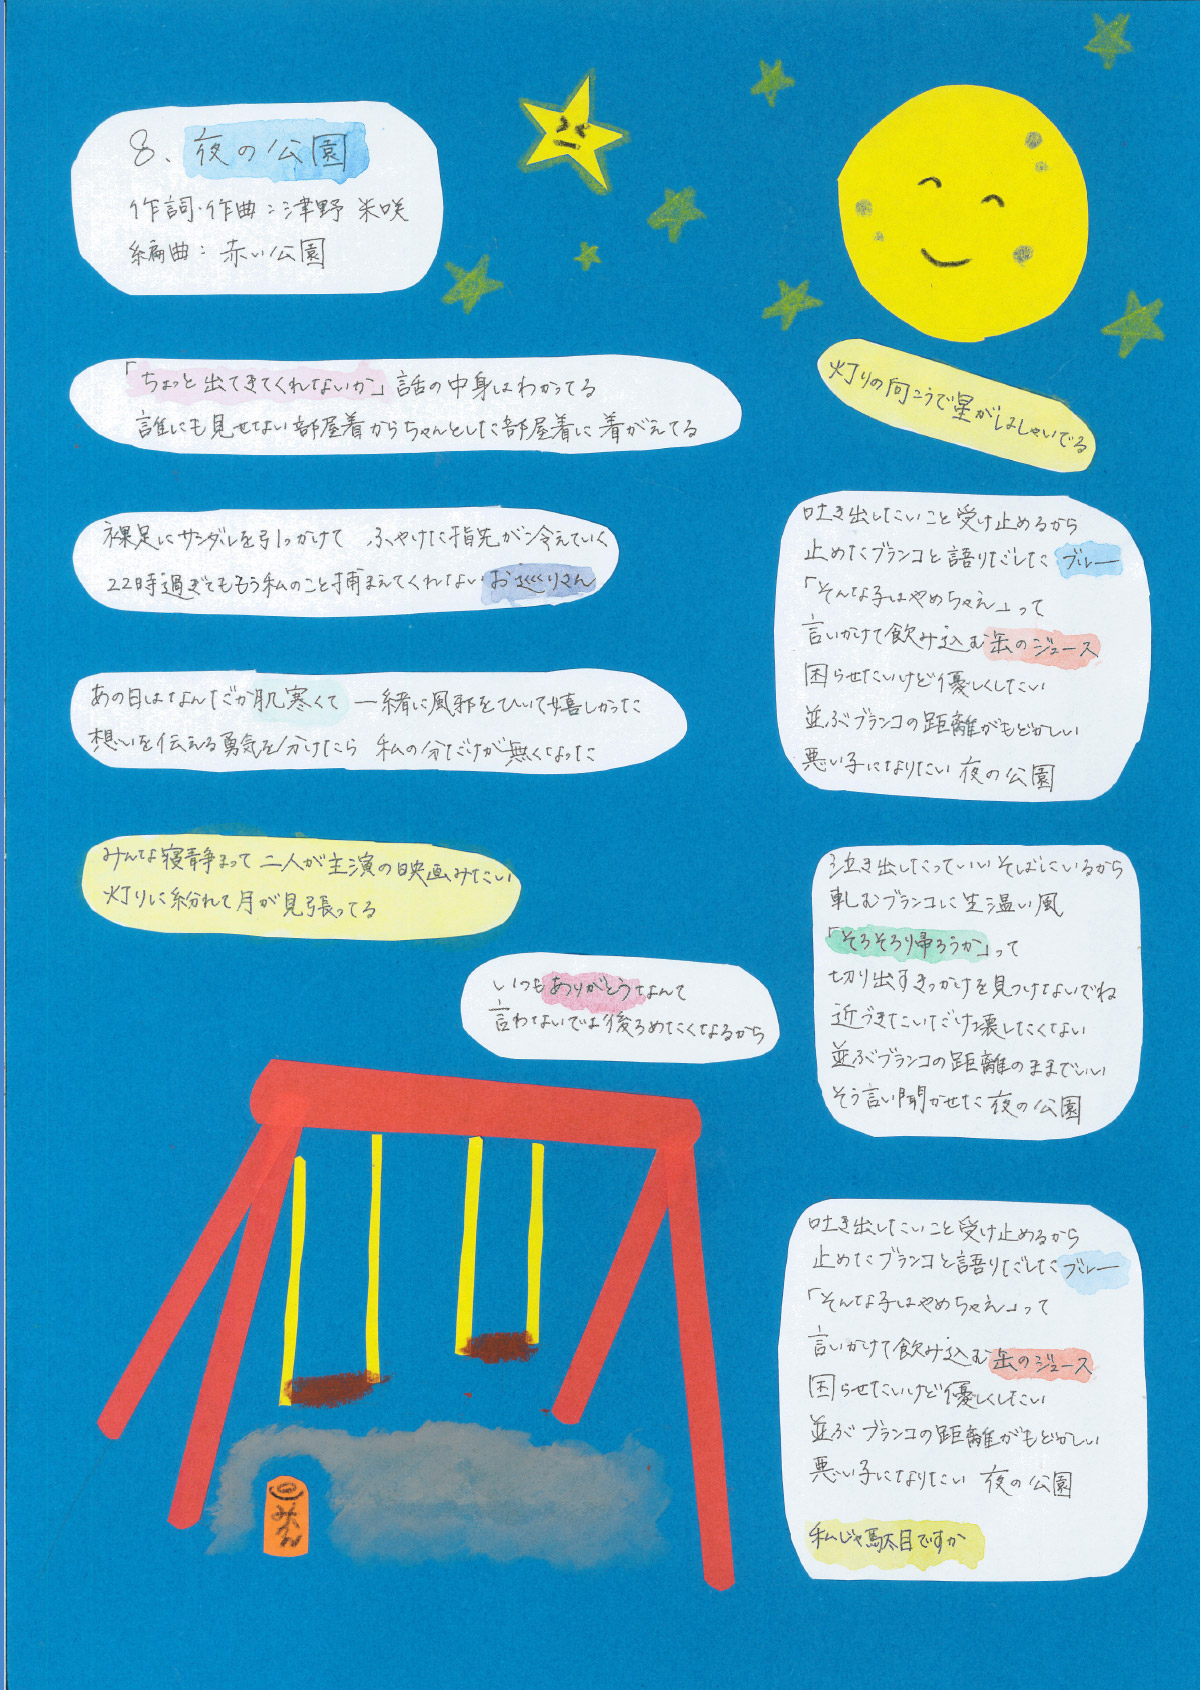 8、夜の公園
作詞・作曲：津野 米咲
編曲：赤い公園
「ちょっと出てきてくれないか」話の中身はわかってる
誰にも見せない部屋着からちゃんとした部屋着に着がえてる
裸足にサンダルを引っかけて ふやけた指先が冷えていく
22時過ぎてももう私のこと捕まえてくれないお巡りさん
あの日はなんだか肌寒くて 一緒に風邪をひいて嬉しかった
想いを伝える勇気を分けたら 私の分だけが無くなった
みんな寝静まって二人が主演の映画みたい
灯りに紛れて月が見張ってる
いつもありがとうなんて
言わないでよ後ろめたくなるから
灯りの向こうで星がはしゃいでる
吐き出したいこと受け止めるから
止めたブランコと語りだしたブルー
「そんな子はやめちゃえ」って
言いかけて飲み込む缶のジュース
困らせたいけど優しくしたい
並ぶブランコの距離がもどかしい
悪い子になりたい 夜の公園
泣き出したっていいそばにいるから
軋むブランコに生温い風
「そろそろ帰ろうか」って
切り出すきっかけを見つけないでね
近づきたいだけ壊したくない
並ぶブランコの距離のままでいい
そう言い聞かせた 夜の公園
吐き出したいこと受け止めるから
止めたブランコと語りだしたブルー
「そんな子はやめちゃえ」って
言いかけて飲み込む缶のジュース
困らせたいけど優しくしたい
並ぶブランコの距離がもどかしい
悪い子になりたい 夜の公園
私じゃ駄目ですか
みかん